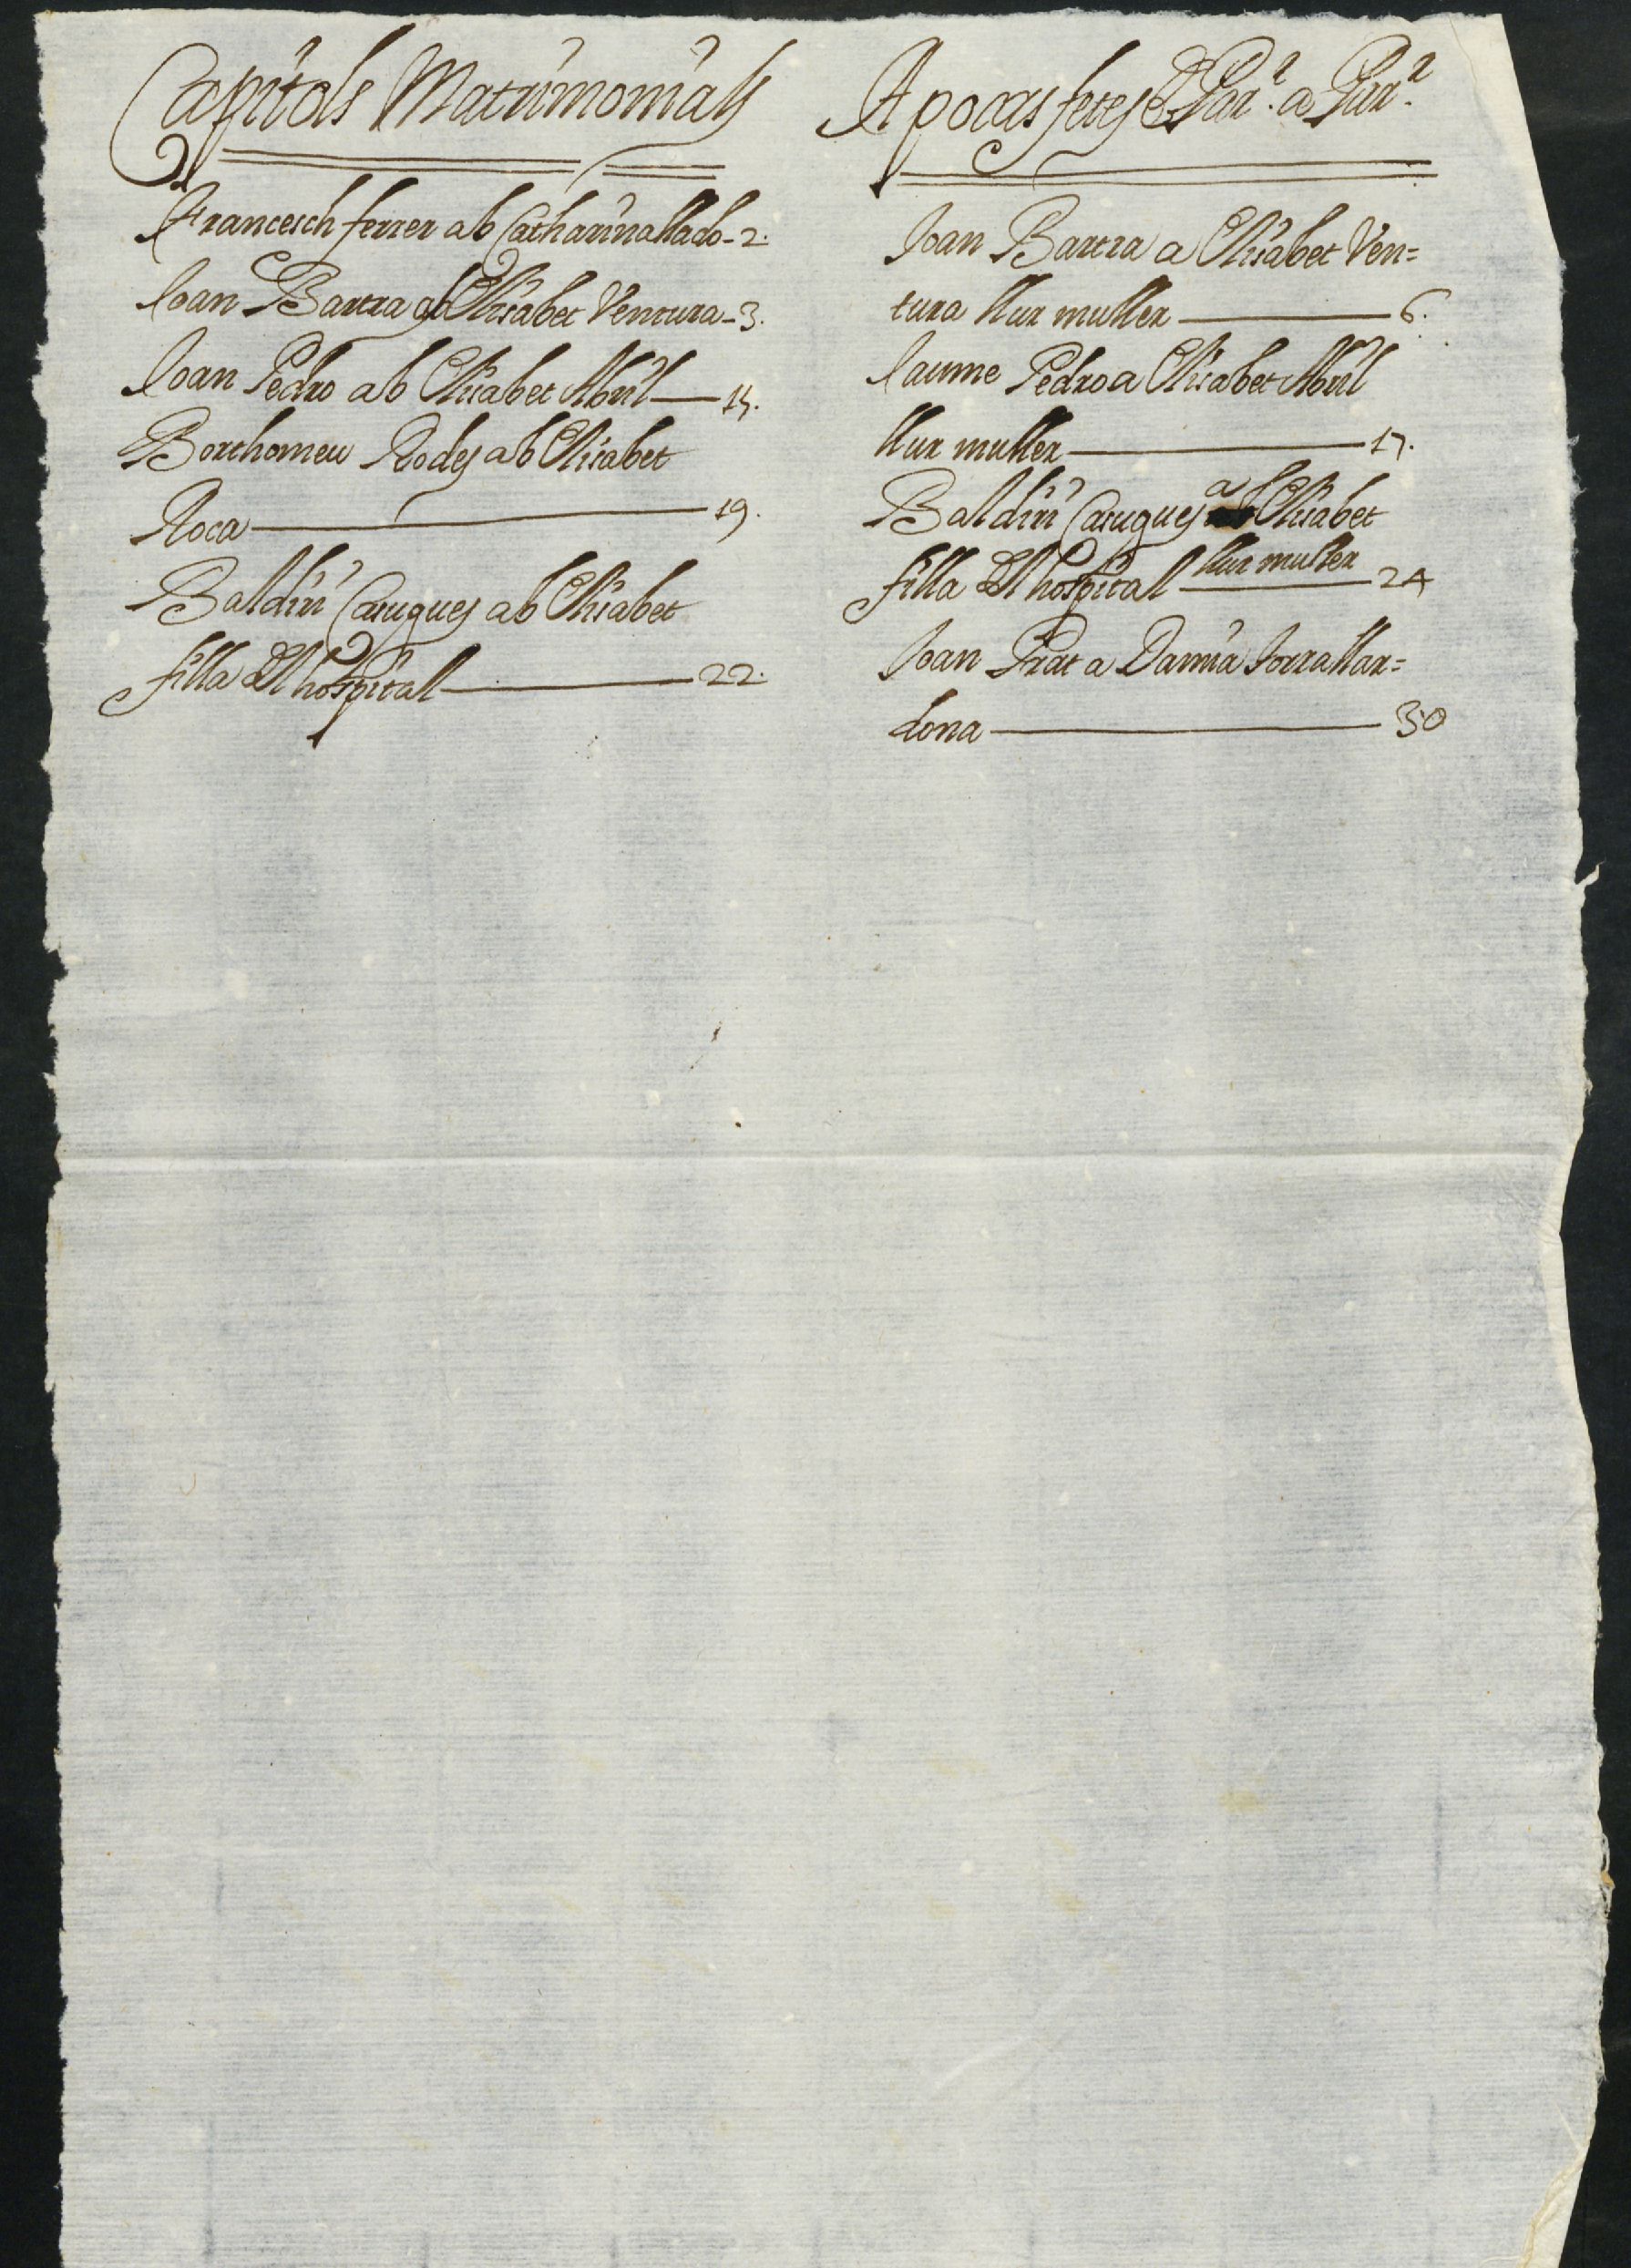 Capitols Matrimonials
Francesch ferrer ab Catharina llado - 2.
Joan Bartra ab Elisabet Ventura - 3.
Joan Pedro ab Elisabet Abril — 14.
Borthomeu Rodes ab Elisabet
Roca — 19.
Baldiri Casugues ab Elisabet
filla Dl hospital — 22.
Apocas fetes de Par.ª a Par.ª
Joan Bartra a Elisabet Ven=
tura llur muller — 6.
Jaume Pedro a Elisabet Abril
llur muller — 17.
Baldiri Casugues a Elisabet
filla Dl hospital llur muller — 24
Joan Prat a Damia Torrallar=
dona — 30